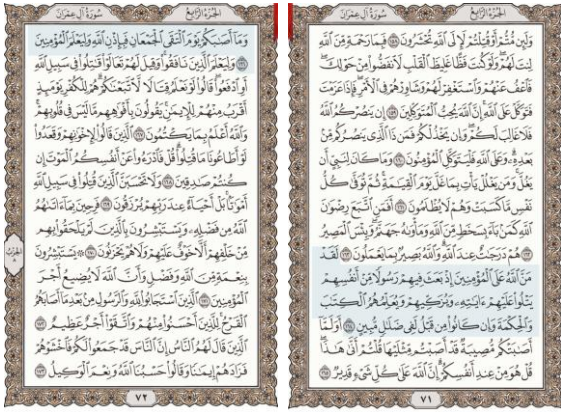 الجزء الرابع
سورة آل عمران
ولئن متم أو قتلتم لإلى الله تحشرون ١٥٨ فبما رحمة من الله
لنت لهم ولو كنت فظا غليظ القلب لانفضوا من حولك
فاعف عنهم واستغفر لهم وشاورهم في الأمر فإذا عزمت
فتوكل على الله إن الله يحب المتوكلين ١٥٩ إن ينصركم الله
فلا غالب لكم وإن يخذلكم فمن ذا الذي ينصركم من
بعده وعلى الله فليتوكل المؤمنون ١٦٠ وما كان لنبي أن
يغل ومن يغلل يأت بما غل يوم القيامة ثم توفى كل
نفس ما كسبت وهم لا يظلمون ١٦١ أفمن اتبع رضوان
الله كمن باء بسخط من الله ومأواه جهنم وبئس المصير
١٦٢ هم درجات عند الله والله بصير بما يعملون ١٦٣ لقد
من الله على المؤمنين إذ بعث فيهم رسولا من أنفسهم
يتلوا عليهم ءاياته ويزكيهم ويعلمهم الكتاب
والحكمة وإن كانوا من قبل لفي ضلال مبين ١٦٤ أولما
أصابتكم مصيبة قد أصبتم مثليها قلتم أنى هذا
قل هو من عند أنفسكم إن الله على كل شيء قدير ١٦٥
٧١
الجزء الرابع
سورة آل عمران
وما أصابكم يوم التقى الجمعان فبإذن الله وليعلم المؤمنين
١٦٦ وليعلم الذين نافقوا وقيل لهم تعالوا قاتلوا في سبيل الله
أو ادفعوا قالوا لو نعلم قتالا لاتبعناكم هم للكفر يومئذ
أقرب منهم للإيمان يقولون بأفواههم ما ليس في قلوبهم
والله أعلم بما يكتمون ١٦٧ الذين قالوا لإخوانهم وقعدوا
لو أطاعونا ما قتلوا قل فادرءوا عن أنفسكم الموت إن
كنتم صادقين ١٦٨ ولا تحسبن الذين قتلوا في سبيل الله
أمواتا بل أحياء عند ربهم يرزقون ١٦٩ فرحين بما ءاتاهم
الله من فضله ويستبشرون بالذين لم يلحقوا بهم
من خلفهم ألا خوف عليهم ولا هم يحزنون ١٧٠ ۞ يستبشرون
بنعمة من الله وفضل وأن الله لا يضيع أجر
المؤمنين ١٧١ الذين استجابوا لله والرسول من بعد ما أصابهم
القرح للذين أحسنوا منهم واتقوا أجر عظيم ١٧٢
الذين قال لهم الناس إن الناس قد جمعوا لكم فاخشوهم
فزادهم إيمانا وقالوا حسبنا الله ونعم الوكيل ١٧٣
٧٢